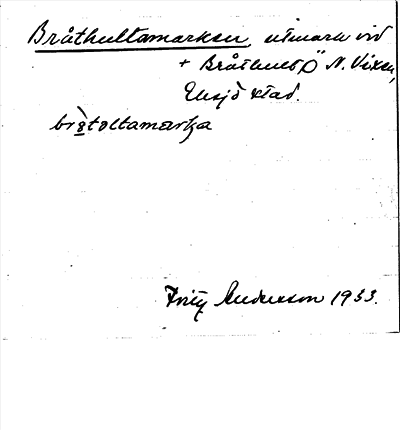 Bråthultamarken, utmark vid
+ Bråthult, Ö N. Vixen,
Eksjö stad.
bròtoltamarka
Fritz Anderson 1933.